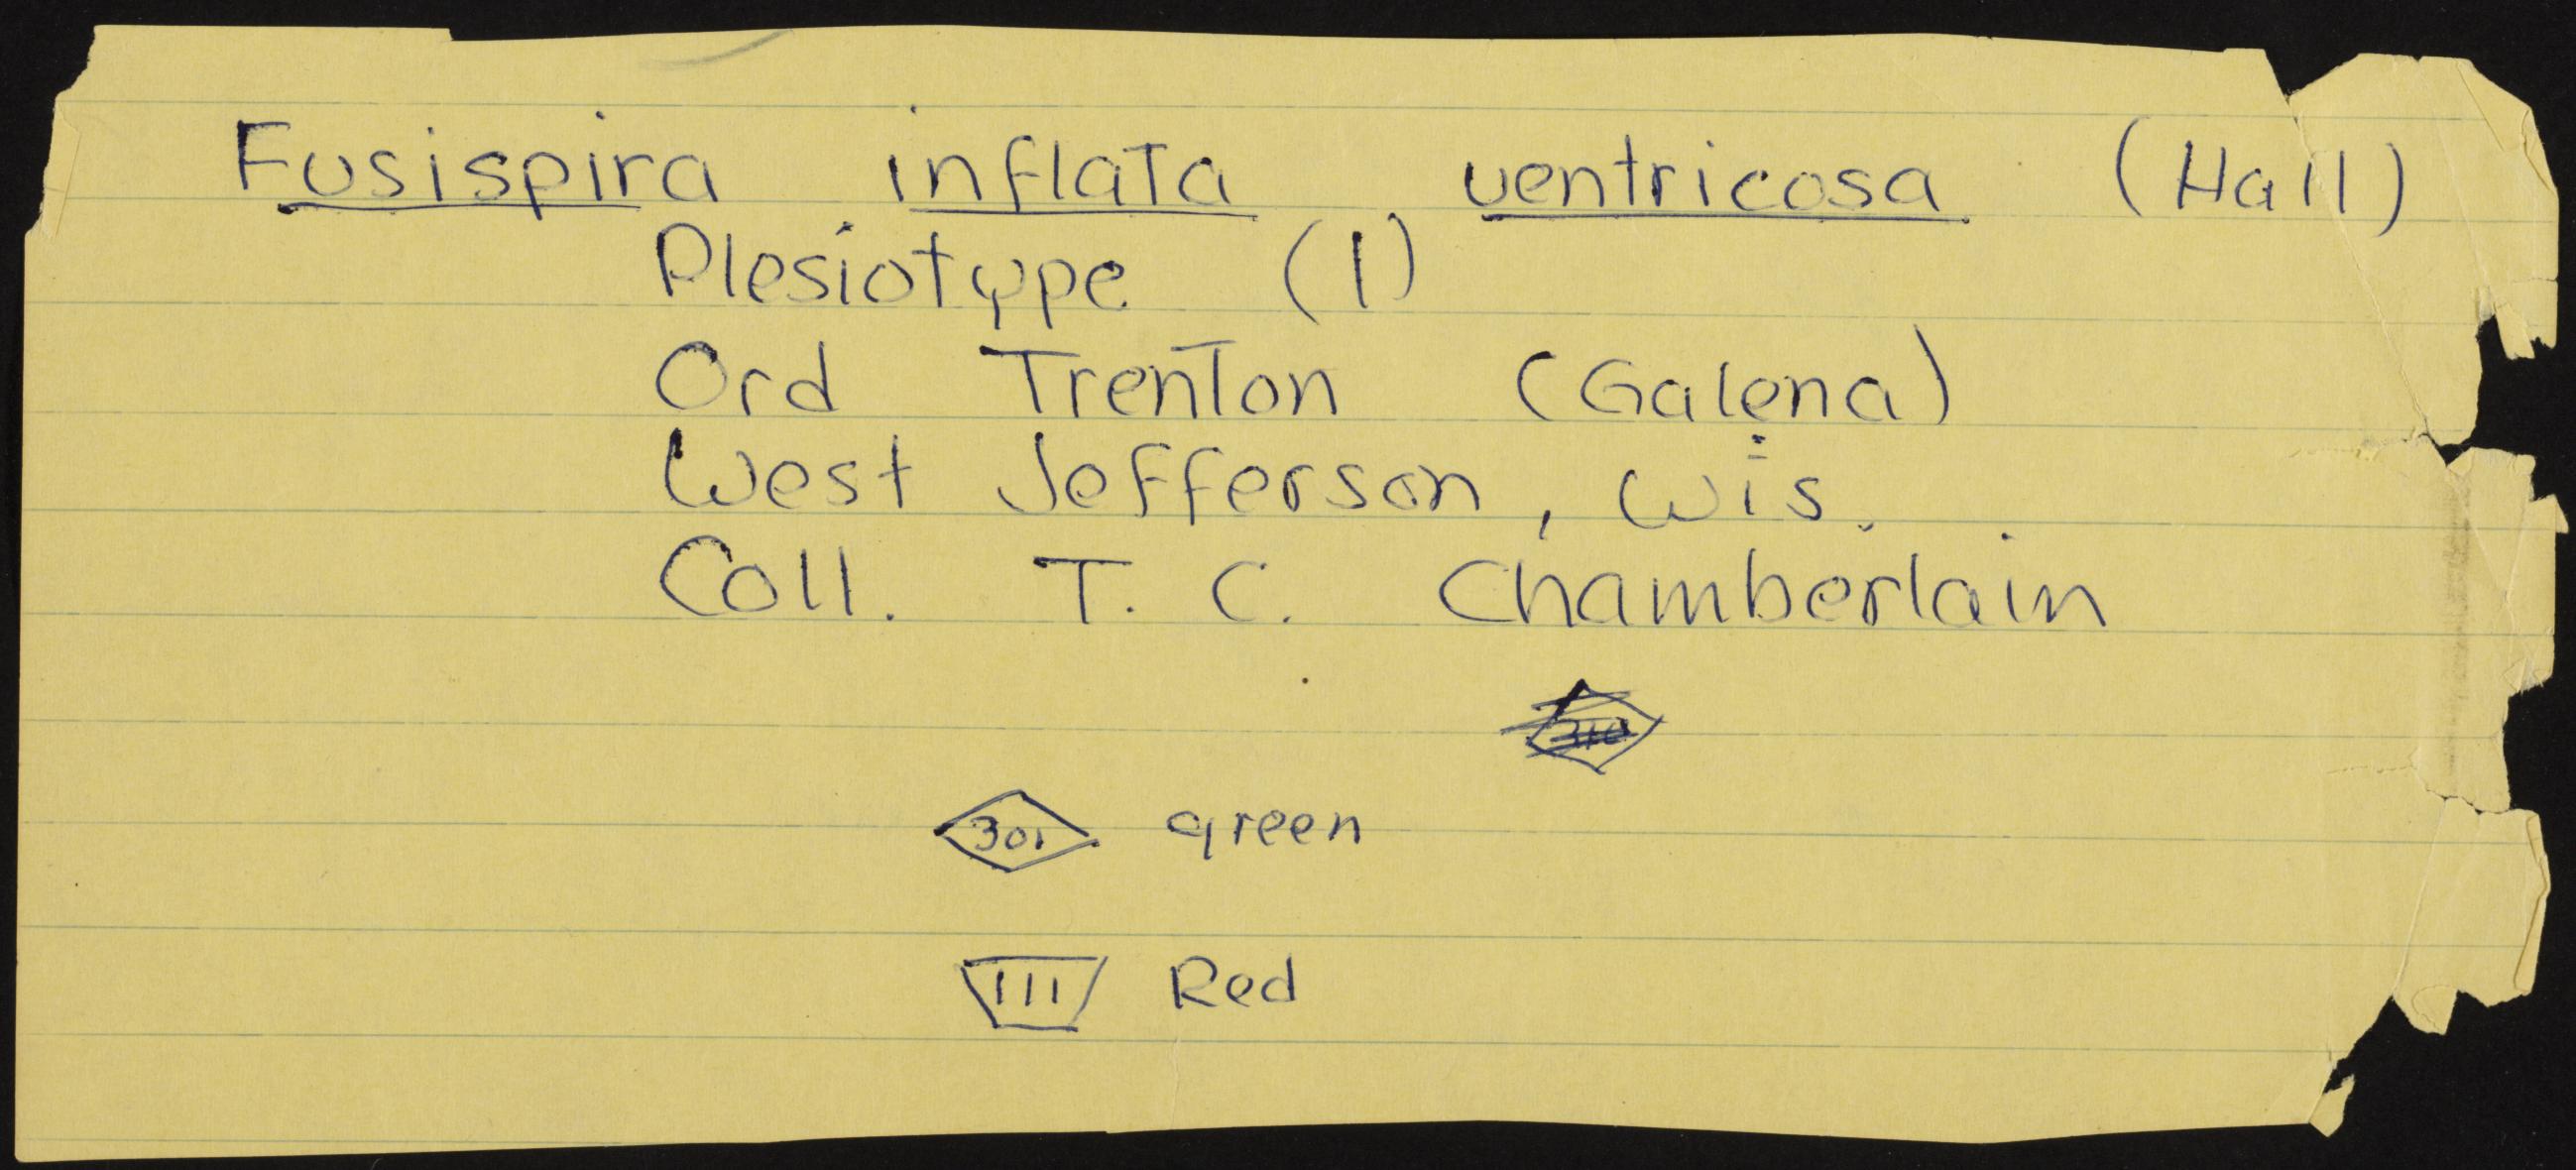 Fusispira inflata ventricosa (Hall)
Plesiotype (1)
Ord Trenton (Galena)
West Jefferson, Wis.
Coll. T. C. Chamberlain
301 green
111 Red